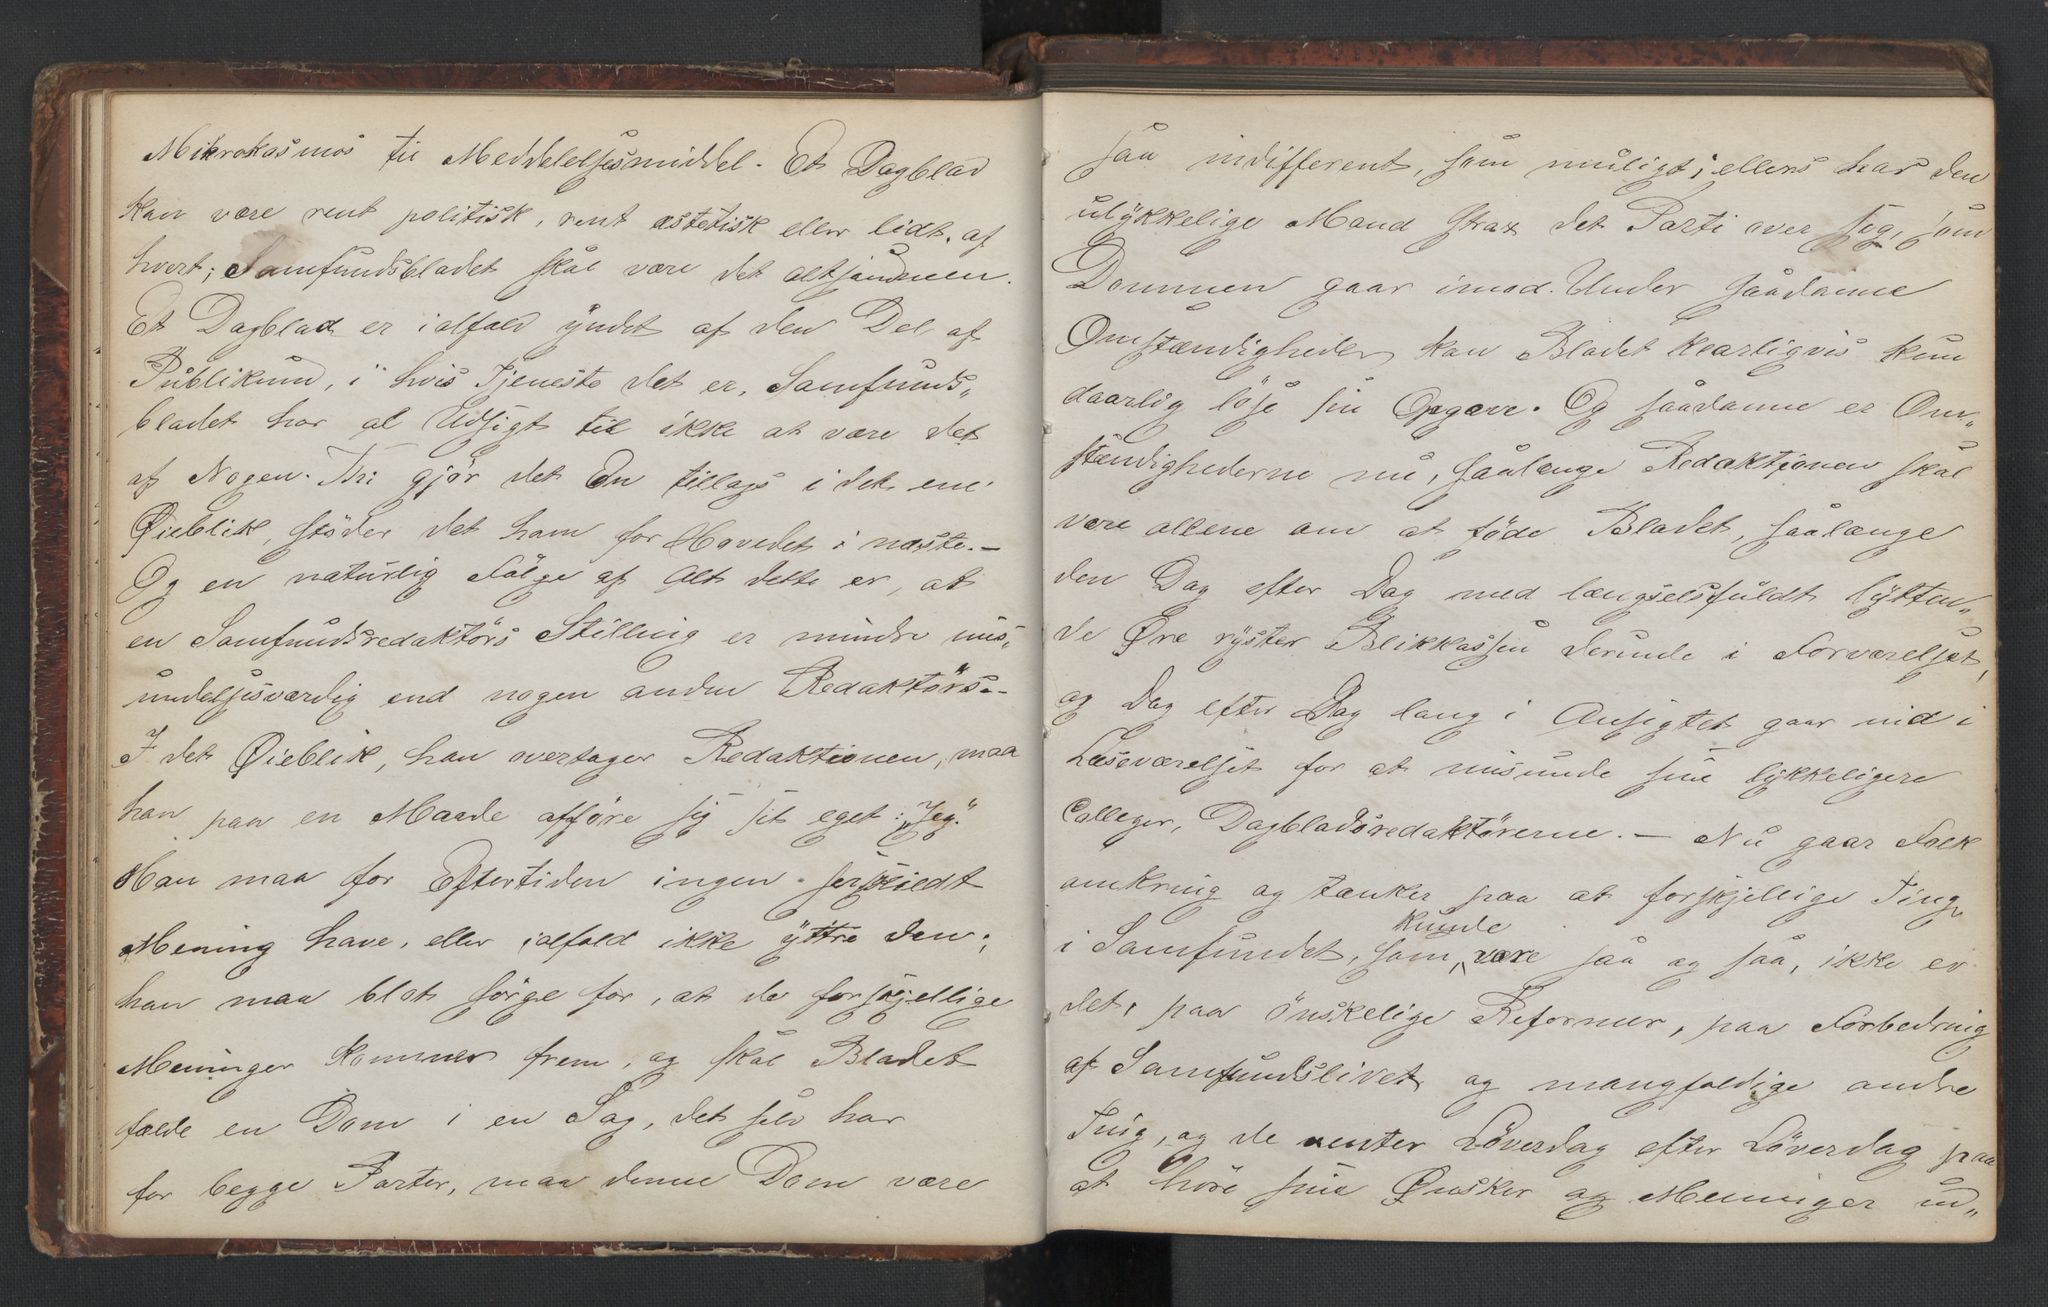 Mikrokosmos til Meddelelsesmiddel. Et Dagblad
kan være rent politisk, rent æstetisk eller lidt af
hvert; Samfundsbladet skal være det altsammen.
Et Dagblad er ialfald yndet af den Del af
Publikum, i hvis Tjeneste det er, Samfunds„
bladet har al Udsigt til ikke at være det
af Nogen. Thi gjør det En tillags i det ene
Øieblik, støder det ham for Hovedet i næste. —
Og en naturlig Følge af Alt dette er, at
en Samfundsredaktørs Stilling er mindre mis„
undelsesværdig end nogen anden Redaktørs. —
I det Øieblik, han overtager Redaktionen, maa
han paa en Maade afføre sig sit eget „Jeg“.
Han maa for Eftertiden ingen serskildt
Mening have, eller ialfald ikke yttre den;
han maa blot sørge for, at de forskjellige
Meninger kommer frem, og skal Bladet
fælde en Dom i en Sag, det selv har
for begge Parter, maa denne Dom være
saa indifferent, som muligt; ellers har den
ulykkelige Mand strax det Parti over sig, som
Dommen gaar imod. Under saadanne
Omstændigheder kan Bladet klarligvis kun
daarlig løse sin Opgave. Og saadanne er Om„
stændighederne nu, saalænge Redaktjonen skal
være allene om at føde Bladet, saalænge
den Dag efter Dag med længselsfuldt lytten„
de Øre ryster Blikkassen derinde i Forværelset,
og Dag efter Dag lang i Ansigtet gaar ind i
Læseværelset for at misunde sine lykkeligere
Colleger, Dagbladsredaktørerne. — Nu gaar Folk
omkring og tænker paa at forskjellige Ting
kunde
i Samfundet, som være saa og saa, ikke er
det, paa ønskelige Reformer, paa Forbedring
af Samfundslivet og mangfoldige andre
Ting, og de venter Løverdag efter Løverdag paa
at høre sine Ønsker og Meninger ud„